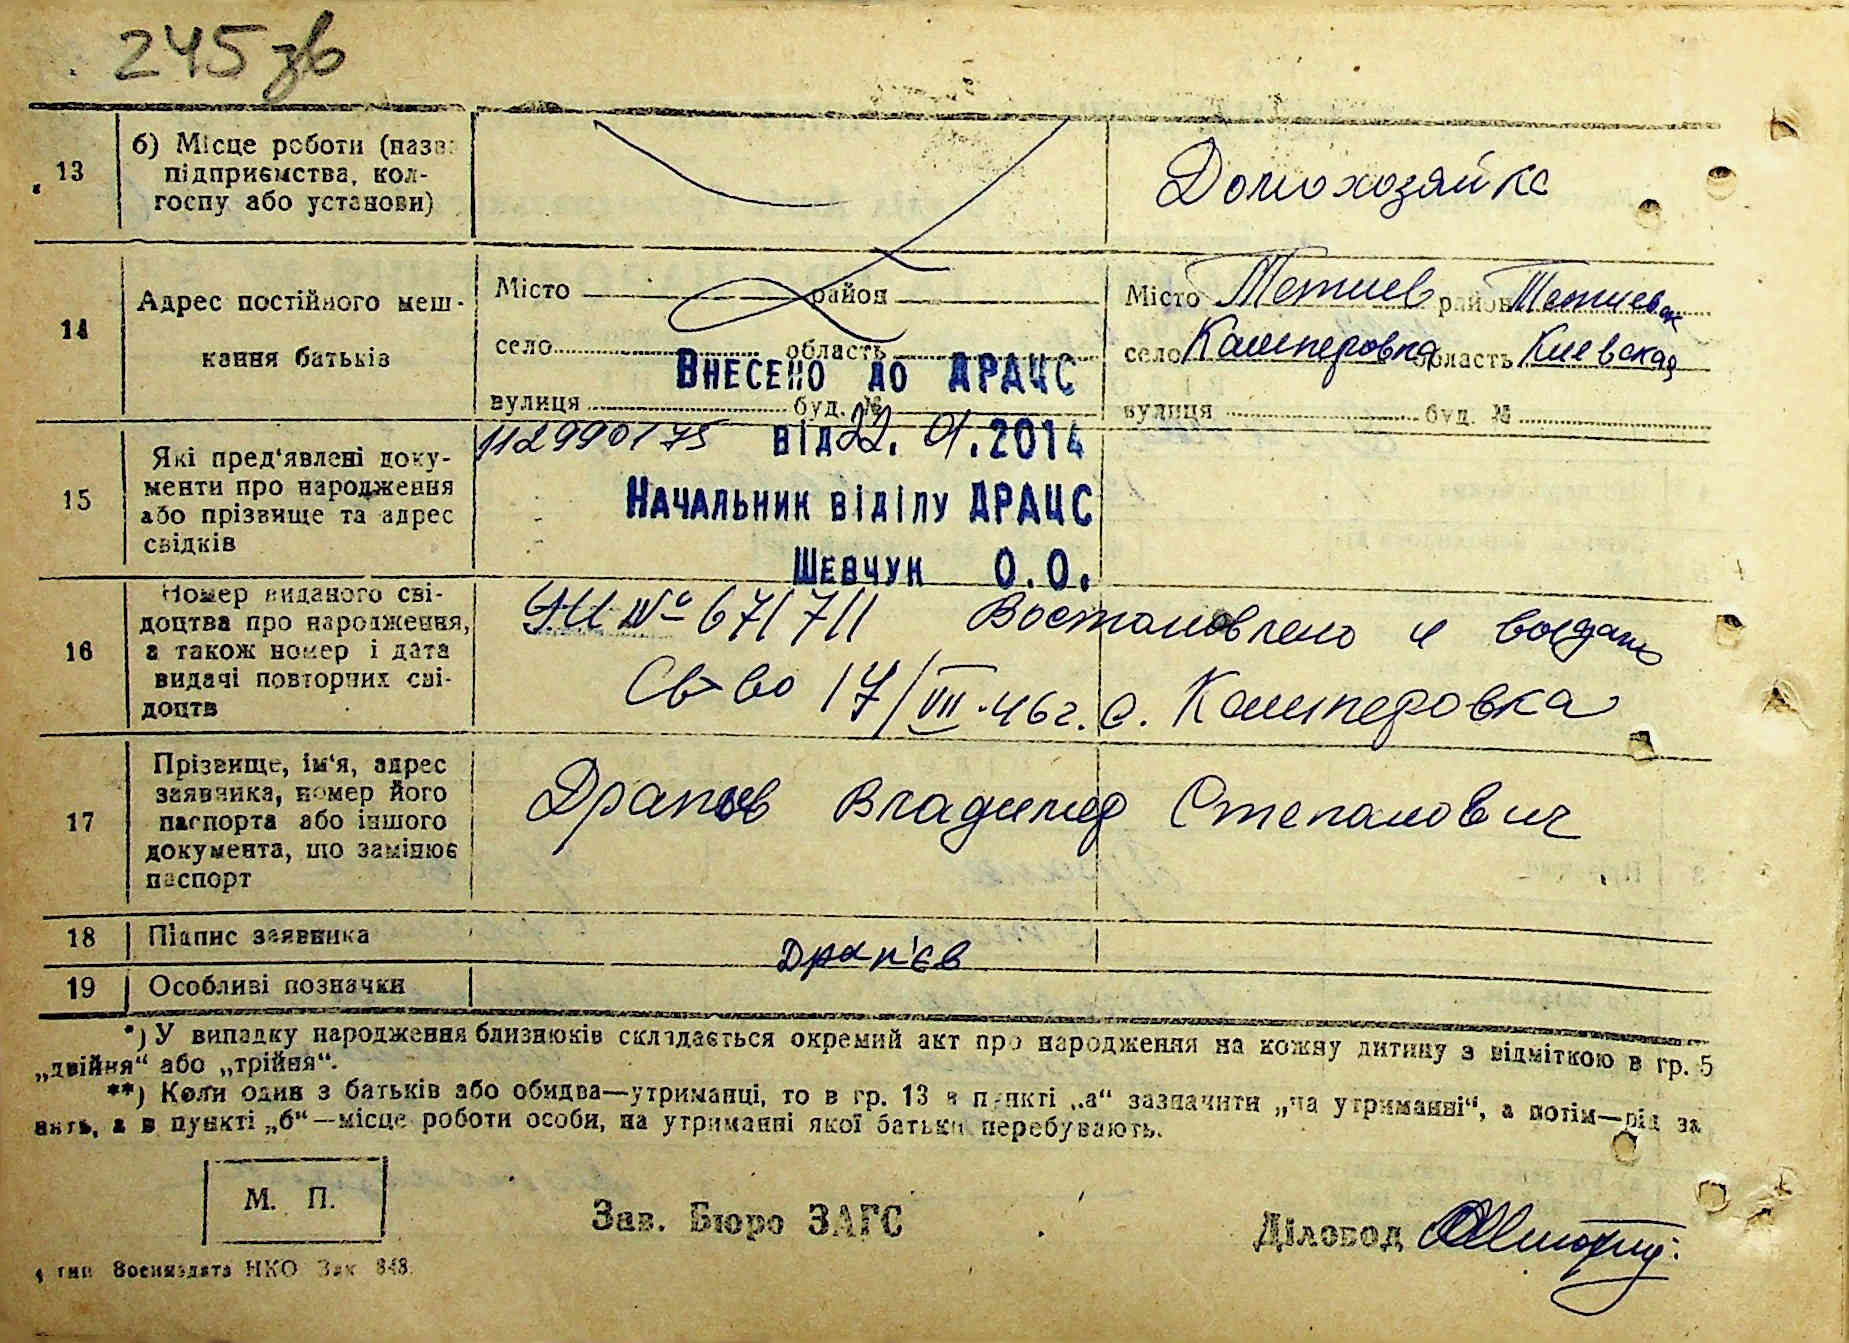 245 зв
13
б) Місце роботи (назва
підприємства, кол-
госпу або установи)
Домохозяйка
14
Адрес постійного меш-
кання батьків
Місто район
село область
вулиця буд. №
Місто Тетиев район Тетиевск
село Кашперовка область Киевская
вулиця буд. №
Внесено до ДРАЦС
112990175 від 22. 01.2014
Начальник відділу ДРАЦС
Шевчук О.О.
15
Які пред'явлені доку-
менти про народження
або прізвище та адрес
свідків
16
Номер виданого сві-
доцтва про народження,
а також номер і дата
видачі повторних сві-
доцтв
№ 671711 Востановлено и выдано
Св-во 17/VII-46г. с. Кашперовка
17
Прізвище, ім'я, адрес
заявника, номер його
паспорта або іншого
документа, що замінює
паспорт
Владимир Степанович
18
Підпис заявника
Драп'єв
19
Особливі позначки
*) У випадку народження близнюків складається окремий акт про народження на кожну дитину з відміткою в гр. 5
„двійня“ або „трійня“.
**) Коли один з батьків або обидва—утриманці, то в гр. 13 в пункті „а“ зазначити „на утриманні“, а потім—рід за
нять, а в пункті „б“—місце роботи особи, на утриманні якої батьки перебувають.
М. П.
Зав. Бюро ЗАГС
Діловод
тип Воениздата НКО Зак 848.